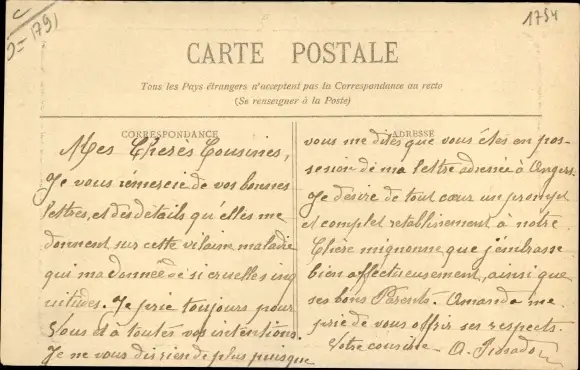 1791
1754
CARTE POSTALE
Tous les Pays étrangers n'acceptent pas la Correspondance au recto
(Se renseigner à la Poste)
CORRESPONDANCE
Mes Cherès Cousines,
Je vous rémercie de vos bonnes
lettres, et des détails qu'elles me
donnent sur cette vilaine maladie
qui m'a donnée de si cruelles inq
uiétudes. Je prie toujours pour
Vous et à toutes vos intentions.
Je ne vous dis rien de plus puisque
ADRESSE
vous me dites que vous étes en pos-
session de ma lettre adressée à Angers.
Je désire de tout cœur un prompt
et complet retablissement à notre
Chère mignonne que j'embrasse
bien affectueusement, ainsi que
ses bons Parents. Amanda me
prie de vous offrir ses respects.
Votre cousine A.